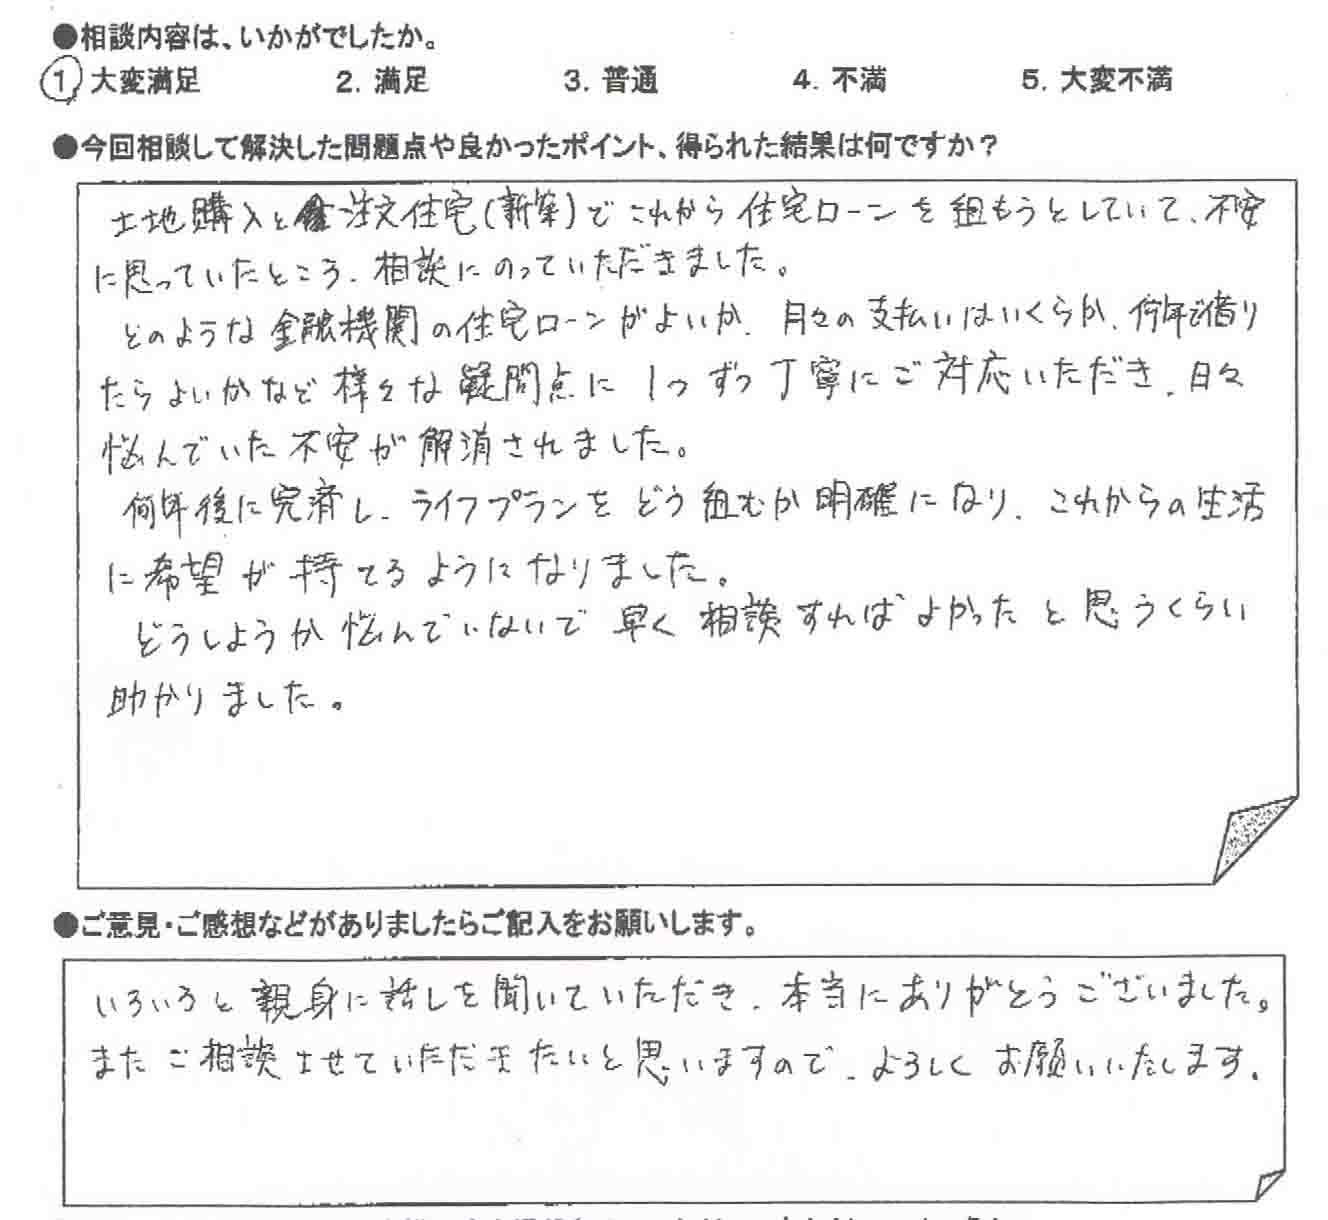 ●相談内容は、いかがでしたか。
1. 大変満足 2. 満足 3. 普通 4. 不満 5. 大変不満
●今回相談して解決した問題点や良かったポイント、得られた結果は何ですか？
土地購入と注文住宅(新築)でこれから住宅ローンを組もうとしていて、不安
に思っていたところ、相談にのっていただきました。
どのような金融機関の住宅ローンがよいか、月々の支払いはいくらか、何年で借り
たらよいかなど様々な疑問点に1つずつ丁寧にご対応いただき、日々
悩んでいた不安が解消されました。
何年後に完済し、ライフプランをどう組むか明確になり、これからの生活
に希望が持てるようになりました。
どうしようか悩んでいないで早く相談すればよかったと思うくらい
助かりました。
●ご意見・ご感想などがありましたらご記入をお願いします。
いろいろと親身に話しを聞いていただき、本当にありがとうございました。
またご相談させていただきたいと思いますので、よろしくお願いいたします。